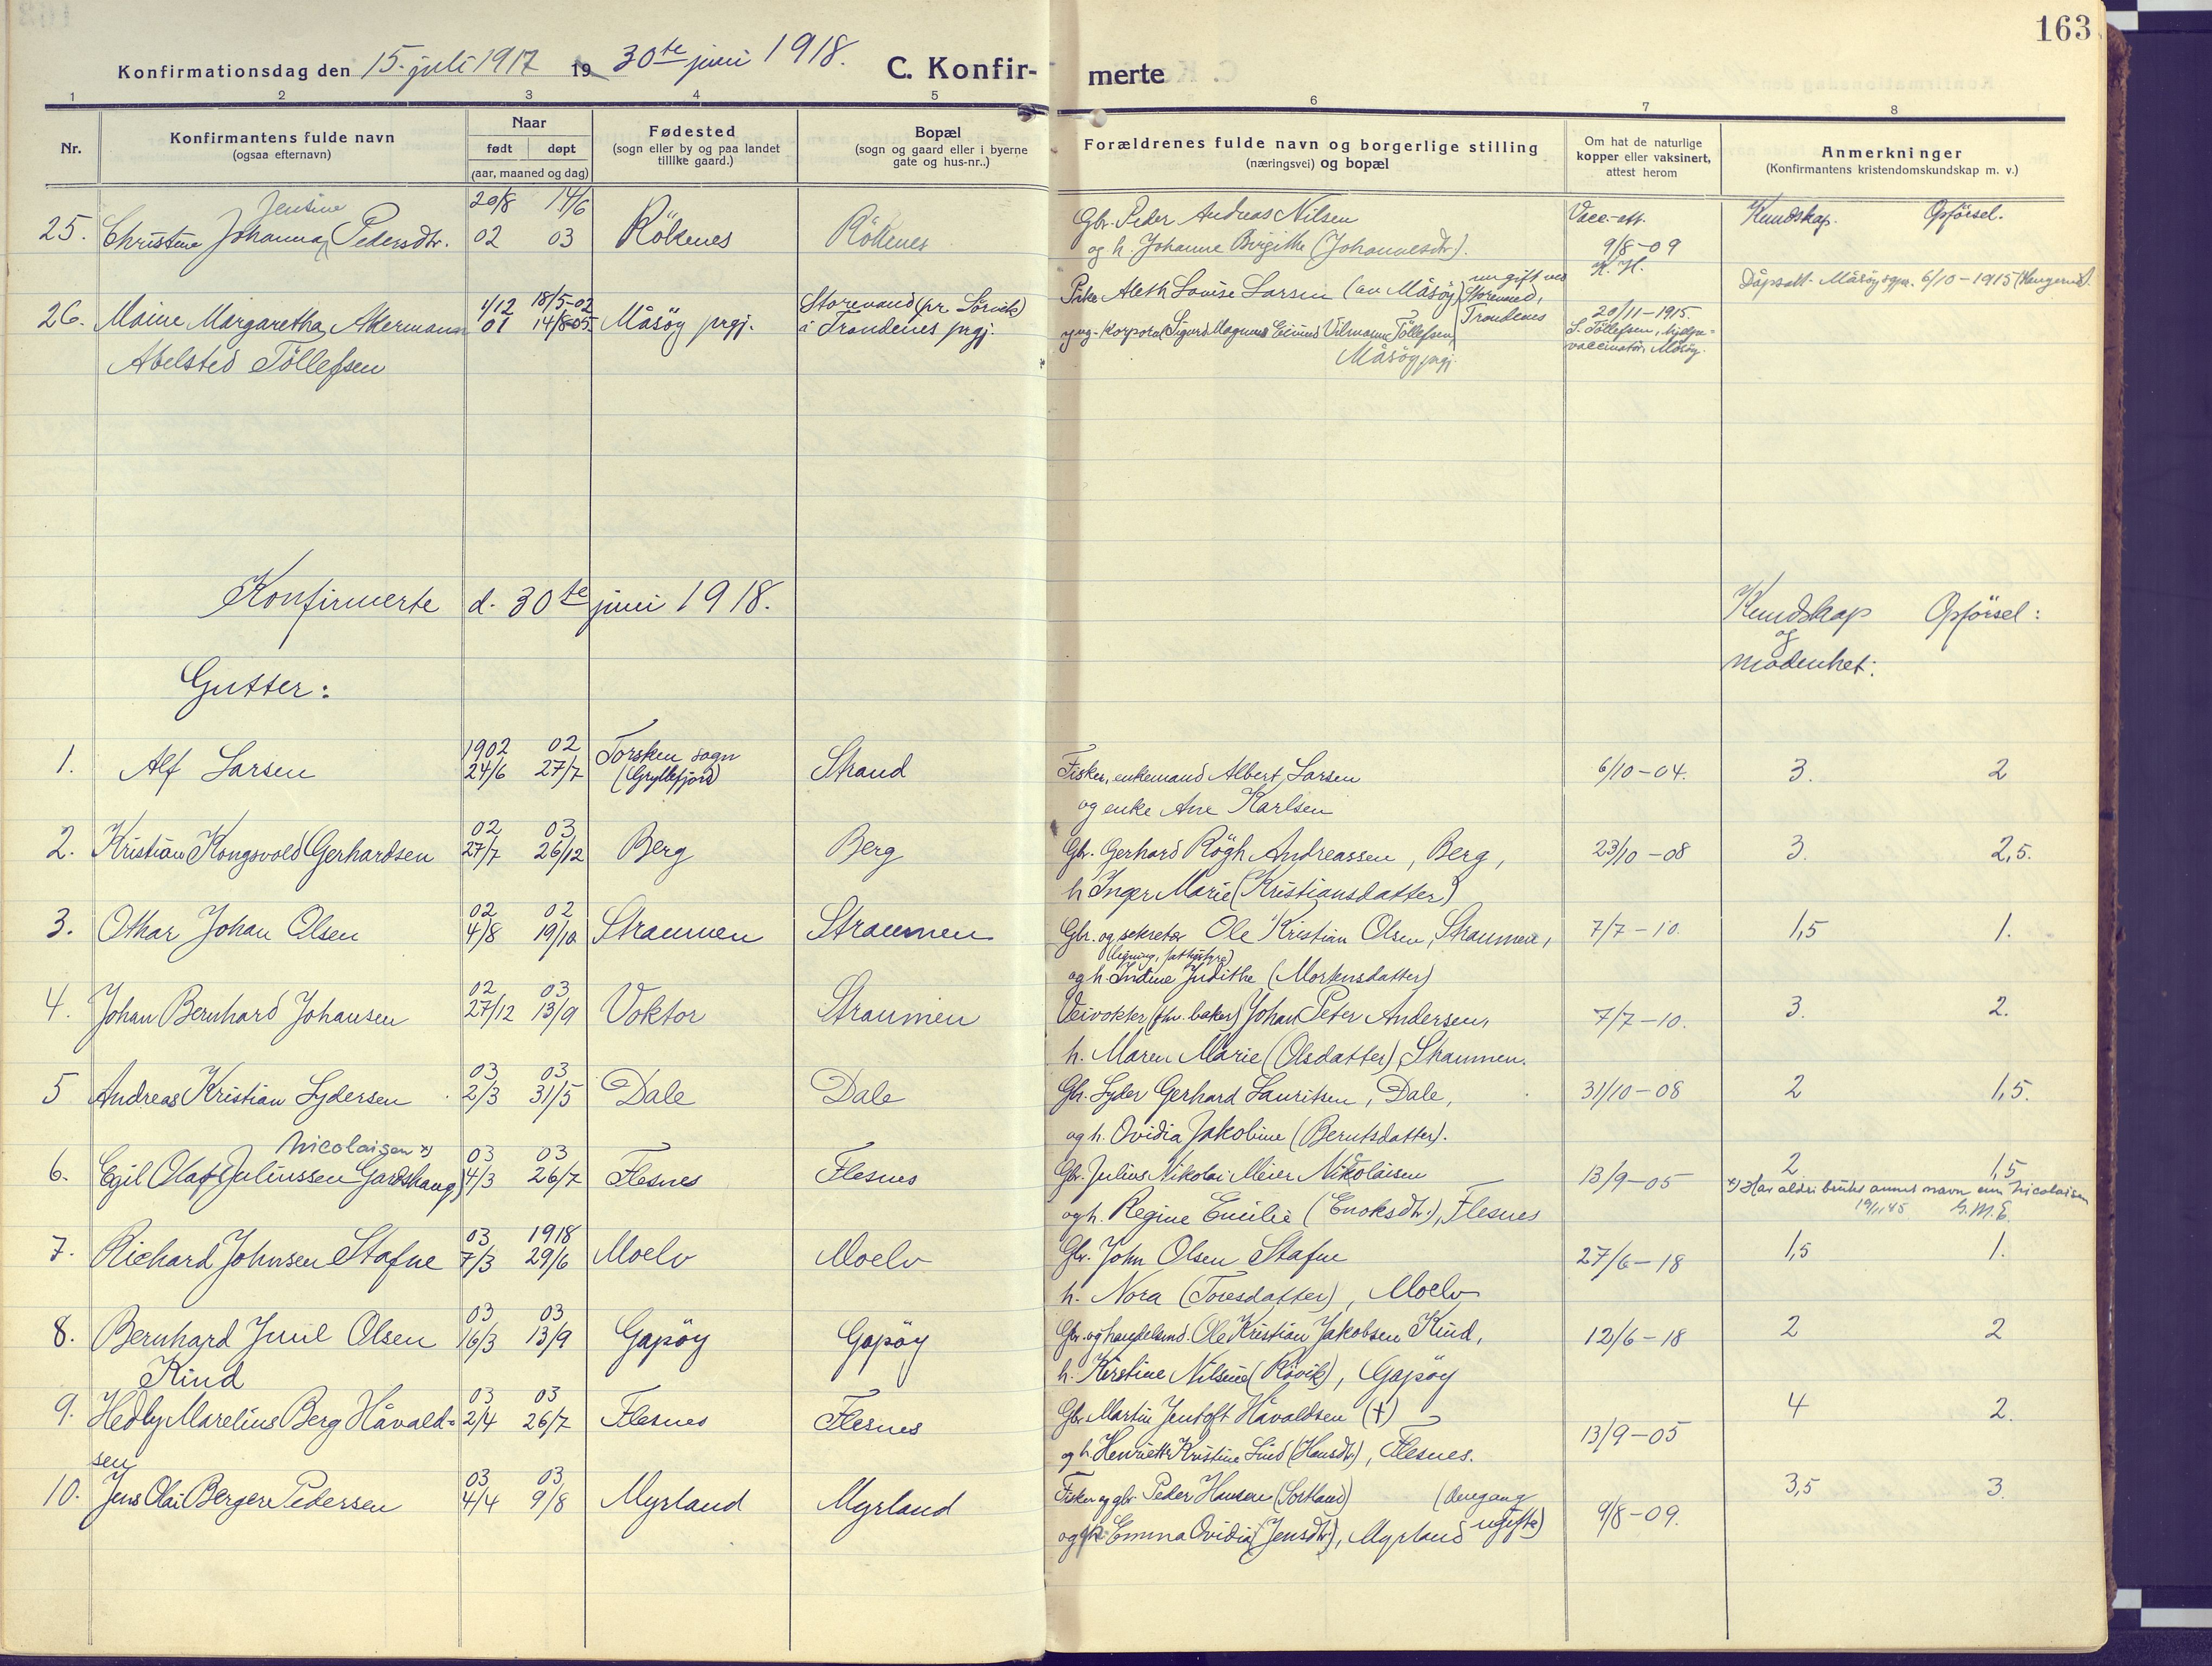 163
Konfirmationsdag den 15. juli 1917 19 30te juni 1918.
C. Konfirmerte
1 2 3 4 5 6 7 8
Nr.
Konfirmantens fulde navn
(ogsaa efternavn)
Naar
født døpt
(aar, maaned og dag)
Fødested
(sogn eller by og paa landet
tillike gaard.)
Bopæl
(sogn og gaard eller i byerne
gate og hus-nr..)
Forældrenes fulde navn og borgerlige stilling
(næringsvei) og bopæl
Om hat de naturlige
kopper eller vaksinert,
attest herom
Anmerkninger
(Konfirmantens kristendomskundskap m. v.)
Jensine 20/8 14/6
25. Christine Johanna Pedersdtr. 02 03 Rökenes Rökenes
Gbr. Peder Andreas Nilsen
og h. Johanne Birgithe (Johannesdtr.).
Vacc.-att.
9/8-09
K. H.
Kundskap. Opförsel.
26. Maine Margaretha Akermann
Abelsted Töllefsen
1/12 18/5-02
01 14/8-05
Måsöy prgj.
Storevand (pr Sörvik)
i Trondenes prgj.
Pike Aleth Lovise Larsen (av Måsöy)
Storevand,
Trondenes
og ug. korporal Sigurd Magnus Eivind Vilmann Töllefsen,
Måsöy prgj.
20/11-1915.
S. Töllefsen, hjelpe-
vaccinatör, Måsöy.
Dåpsatt. Måsöy sgpr. 6/10-1915
Konfirmerte d. 30te juni 1918.
Kundskap Opförsel:
og
modenhet:
Gutter:
1. Alf Larsen
1902 02
24/6 27/7
Torsken sogn
(Gryllefjord)
Strand
Fisker, enkemand Albert Larsen
og enke Ane Karlsen
6/10-04. 3. 2
2. Kristian Kongsvold Gerhardsen
02 03
27/7 26/12
Berg Berg
Gbr. Gerhard Rögh Andreassen, Berg,
h Inger Marie (Kristiansdatter)
23/10-08 3. 2,5.
3. Othar Johan Olsen
02 02
4/8 19/10
Straumen Straumen
Gbr. og sekretær Ole Kristian Olsen, Straumen,
(ligning, fattigstyre)
og h. Indine Judithe (Mortensdatter)
7/7-10. 1,5 1.
4. Johan Bernhard Johansen
02 03
27/12 13/9
Voktor Straumen
Veivokter (fhv. baker) Johan Peter Andersen,
h. Maren Marie (Olsdatter), Straumen.
7/7-10. 3. 2.
5 Andreas Kristian Lydersen
03 03
2/3 31/5
Dale Dale
Gbr. Lyder Gerhard Lauritsen, Dale,
og h. Ovidia Jakobine (Berntsdatter).
31/10-08 2 1,5.
Nicolaisen x)
6. Egil Olaf (Juliussen Gardshaug)
03 03
4/3 26/7
Flesnes Flesnes
Gbr. Julius Nikolai Meier Nikolaisen
og h. Regine Emilie (Enoksdtr.), Flesnes
13/9-05 2 1,5
x) Har aldri brukt annet navn enn Nicolaisen
19/1 45 G.M.E.
7. Richard Johnsen Stafne
03 1918
7/3 29/6
Moelv Moelv
Gbr. John Olsen Stafne
h. Nora (Toresdatter), Moelv
27/6-18 1,5 1.
8. Bernhard Juul Olsen
Kind
03 03
16/3 13/9
Gapöy Gapöy
Gbr. og handelsmd. Ole Kristian Jakobsen Kind,
h. Kirstine Nilsine (Rövik), Gapöy
12/6-18 2 2
9. Hedley Marelius Berg Håvald-
sen
03 03
2/4 26/7
Flesnes Flesnes
Gbr. Martin Jentoft Håvaldsen (†)
og h. Henriette Kristine Lind (Hansdtr), Flesnes.
13/9-05 4 2.
10. Jens Olai Berger Pedersen
03 03
4/4 9/8
Myrland Myrland
Fisker og gbr. Peder Hansen (Sortland) (dengang
og Emma Ovidia (Jensdtr), Myrland ugifte)
9/8-09. 3,5 3.